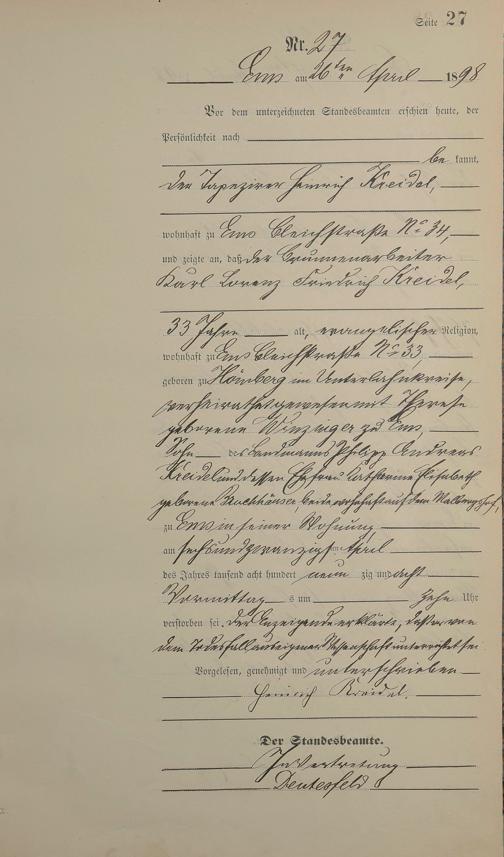 Seite 27
Nr. 27
Ems am 26ten April 1898
Vor dem unterzeichneten Standesbeamten erschien heute, der
Persönlichkeit nach
be kannt,
der Tapezirer Heinrich Kreidel,
wohnhaft zu Ems Bleichstraße No 34,
und zeigte an, daß der Brunnenarbeiter
Karl Lorenz Friedrich Kreidel,
33 Jahre alt, evangelischer Religion,
wohnhaft zu Ems Bleichstraße No 33,
geboren zu Hömberg im Unterlahnkreise,
verheirathet gewesen mit Therese
geborene Winzinger zu Ems,
Sohn des Landmanns Philipp Andreas
Kreidel und dessen Ehefrau Katharine Elisabeth
geborene beide wohnhaft auf dem
zu Ems in seiner Wohnung
am sechsundzwanzigsten April
des Jahres tausend acht hundert neun zig und acht
Vormittags um zehn Uhr
verstorben sei. Der Anzeigende erklärte, daß er von
dem Todesfall aus eigener Wissenschaft unterrichtet sei
Vorgelesen, genehmigt und unterschrieben
Heinrich Kreidel.
Der Standesbeamte.
In Vertretung
Deutesfeld